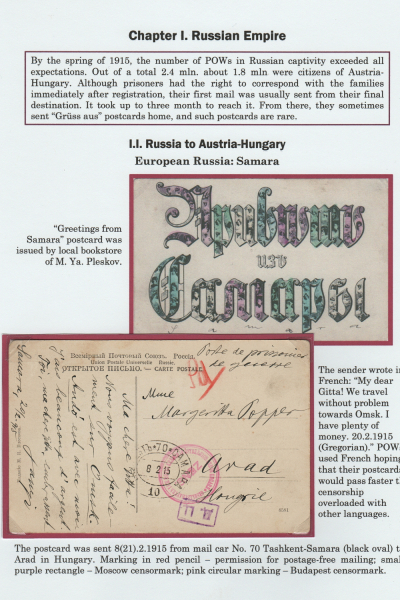 Chapter I. Russian Empire
By the spring of 1915, the number of POWs in Russian captivity exceeded all
expectations. Out of a total 2.4 mln. about 1.8 mln were citizens of Austria-
Hungary. Although prisoners had the right to correspond with the families
immediately after registration, their first mail was usually sent from their final
destination. It took up to three month to reach it. From there, they sometimes
sent “Grüss aus” postcards home, and such postcards are rare.
I.I. Russia to Austria-Hungary
European Russia: Samara
“Greetings from
Samara” postcard was
issued by local bookstore
of M. Ya. Pleskov.
Привѣтъ
изъ
Самары
Всемірный Почтовый Союзъ. Россія.
Union Postale Universelle. Russie.
ОТКРЫТОЕ ПИСЬМО. — CARTE POSTALE.
Poste de prisonniers
de guerre
Mme
Margaretta Popper
Arad
Hongrie
Ma chère Gitta!
Nous voyageons
sur Omsk.
beaucoup d'argent
Samara
8 2 15
10
The sender wrote i
French: “My dear
Gitta! We travel
without problem
towards Omsk. I
have plenty of
money. 20.2.1915
(Gregorian).” POW
used French hoping
that their postcards
would pass faster t
censorship
overloaded with
other languages.
The postcard was sent 8(21).2.1915 from mail car No. 70 Tashkent-Samara (black oval) t
Arad in Hungary. Marking in red pencil – permission for postage-free mailing; smal
purple rectangle – Moscow censormark; pink circular marking – Budapest censormark.